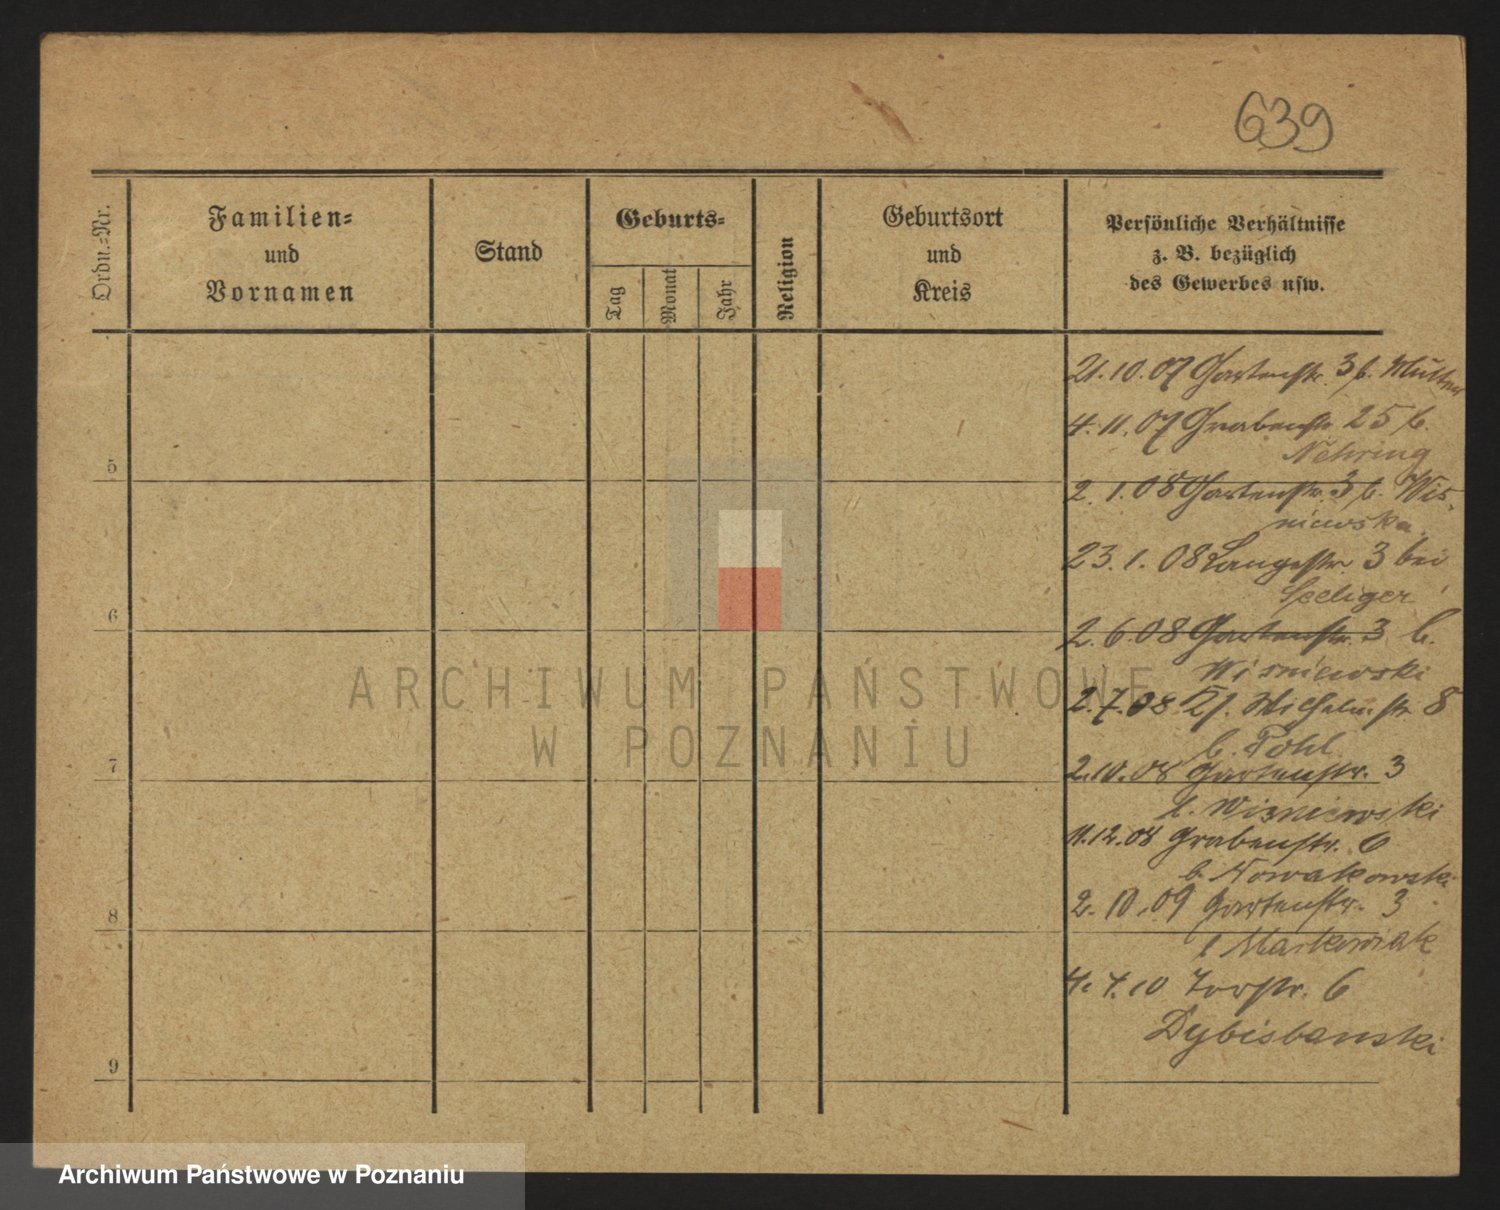 639
Ordn.=Nr.
Familien=
und
Vornamen
Stand
Geburts=
Tag
Monat
Jahr
Religion
Geburtsort
und
Kreis
Persönliche Verhältnisse
z. B. bezüglich
des Gewerbes usw.
21.10.07 Gartenstr. 3 b. Mutter
4.11.07 Grabenstr 25 b.
Nehring
5
2.1.08 Gartenstr. 3 b. Wis-
niewska
23.1.08 Langestr. 3 bei
Seeliger
6
2.6.08 Gartenstr. 3 b.
Wisniewski
2.7.08 Wilhelmstr 8
b. Pohl
7
2.10.08 Gartenstr. 3
b. Wisniewski
11.12.08 Grabenstr. 6
b. Nowakowski
2.10.09 Gartenstr. 3
8
Markowiak
4.7.10 Torstr. 6
Dybisbanski
9
ARCHIWUM PAŃSTWOWE
W POZNANIU
Archiwum Państwowe w Poznaniu